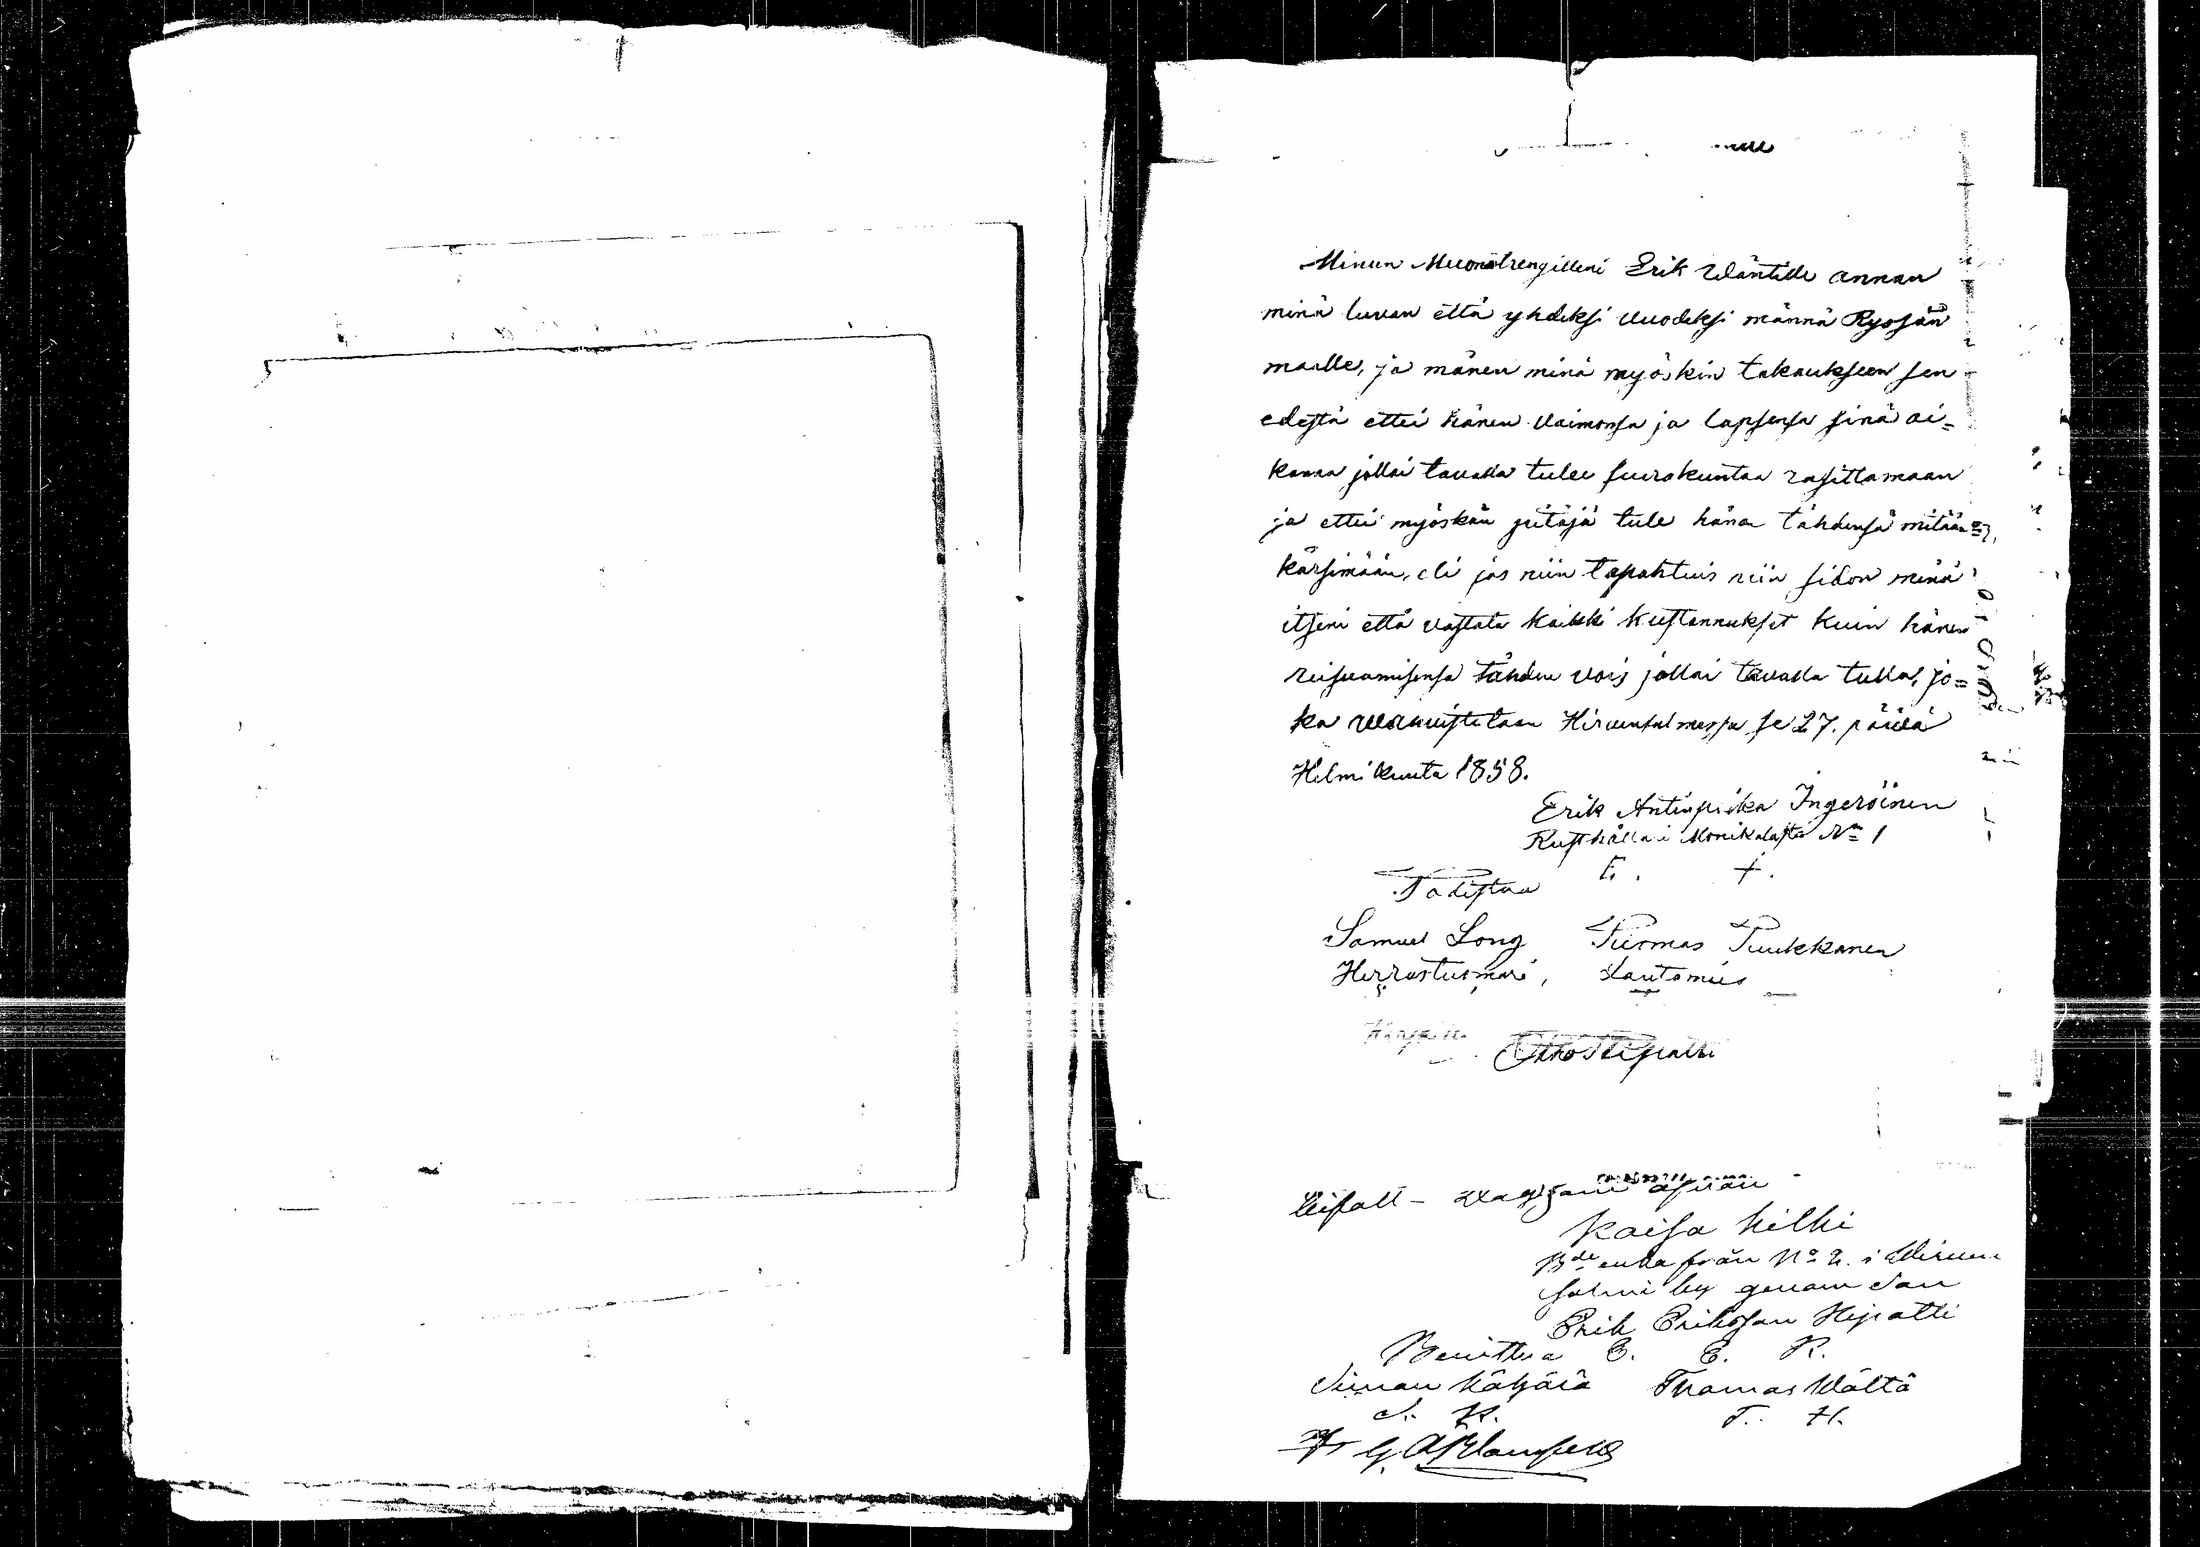 Minun Muonatrengilleni Erik Wäntille annan
minä luvan että yhdeksi vuodeksi männä Ryssän
maalle, ja mänen minä myöskin takaukseen sen
edestä ettei hänen vaimonsa ja lapsensa sinä ai=
kana jollai tavalla tulee seurakuntaa rasittamaan
ja ettei myöskän pitäjä tule hänen tähdensä mitään
kärsimään, eli jos niin tapahtuis niin sidon minä
itseni että vastata kaikki kustannukset kuin hänen
reisuamisensa tähden vois jollai tavalla tulla, jo=
ka vahvistetaan Hirvensalmessa se 27. päivä
Helmikuuta 1858.
Erik Antinpoika Ingeröinen
Rusthållari Monikalasta No 1
E. +.
Todistaa
Samuel Long Tuomas Tuukkanen
Herrastuomari, Lautamies
Otto Reipatti
Kaisa Kilki
Bde enka från No 2. i Hirven
salmi by genom son
Erik Eriksson Reipatti
E. E. R.
Simon Thomas
S. K. T. H.